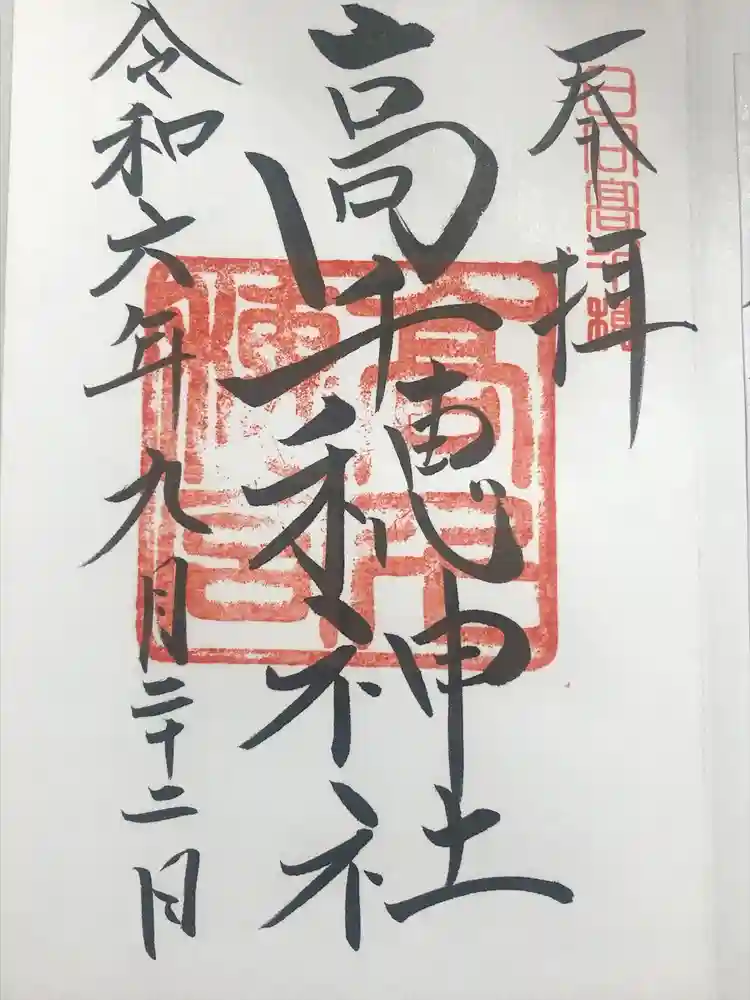 奉拝
日向高千穂
高千穂神社
令和六年九月二十二日